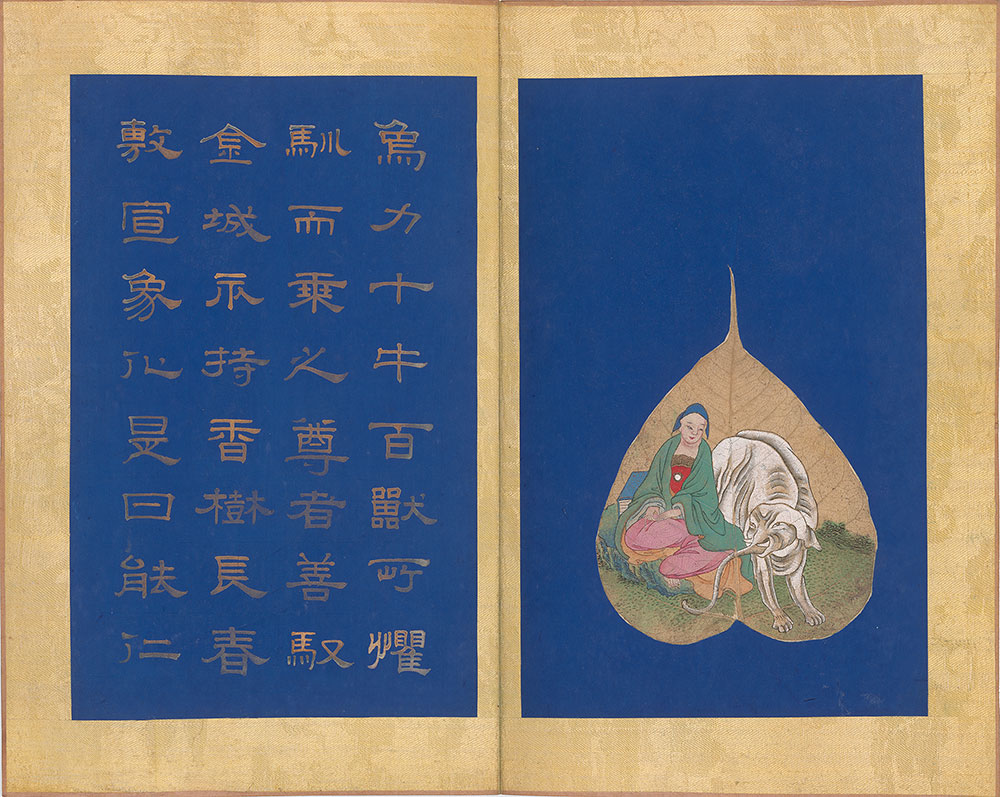 象力十牛百獸所懼
馴而乘之尊者善馭
金城示持香樹長春
敷宣象化是曰能仁